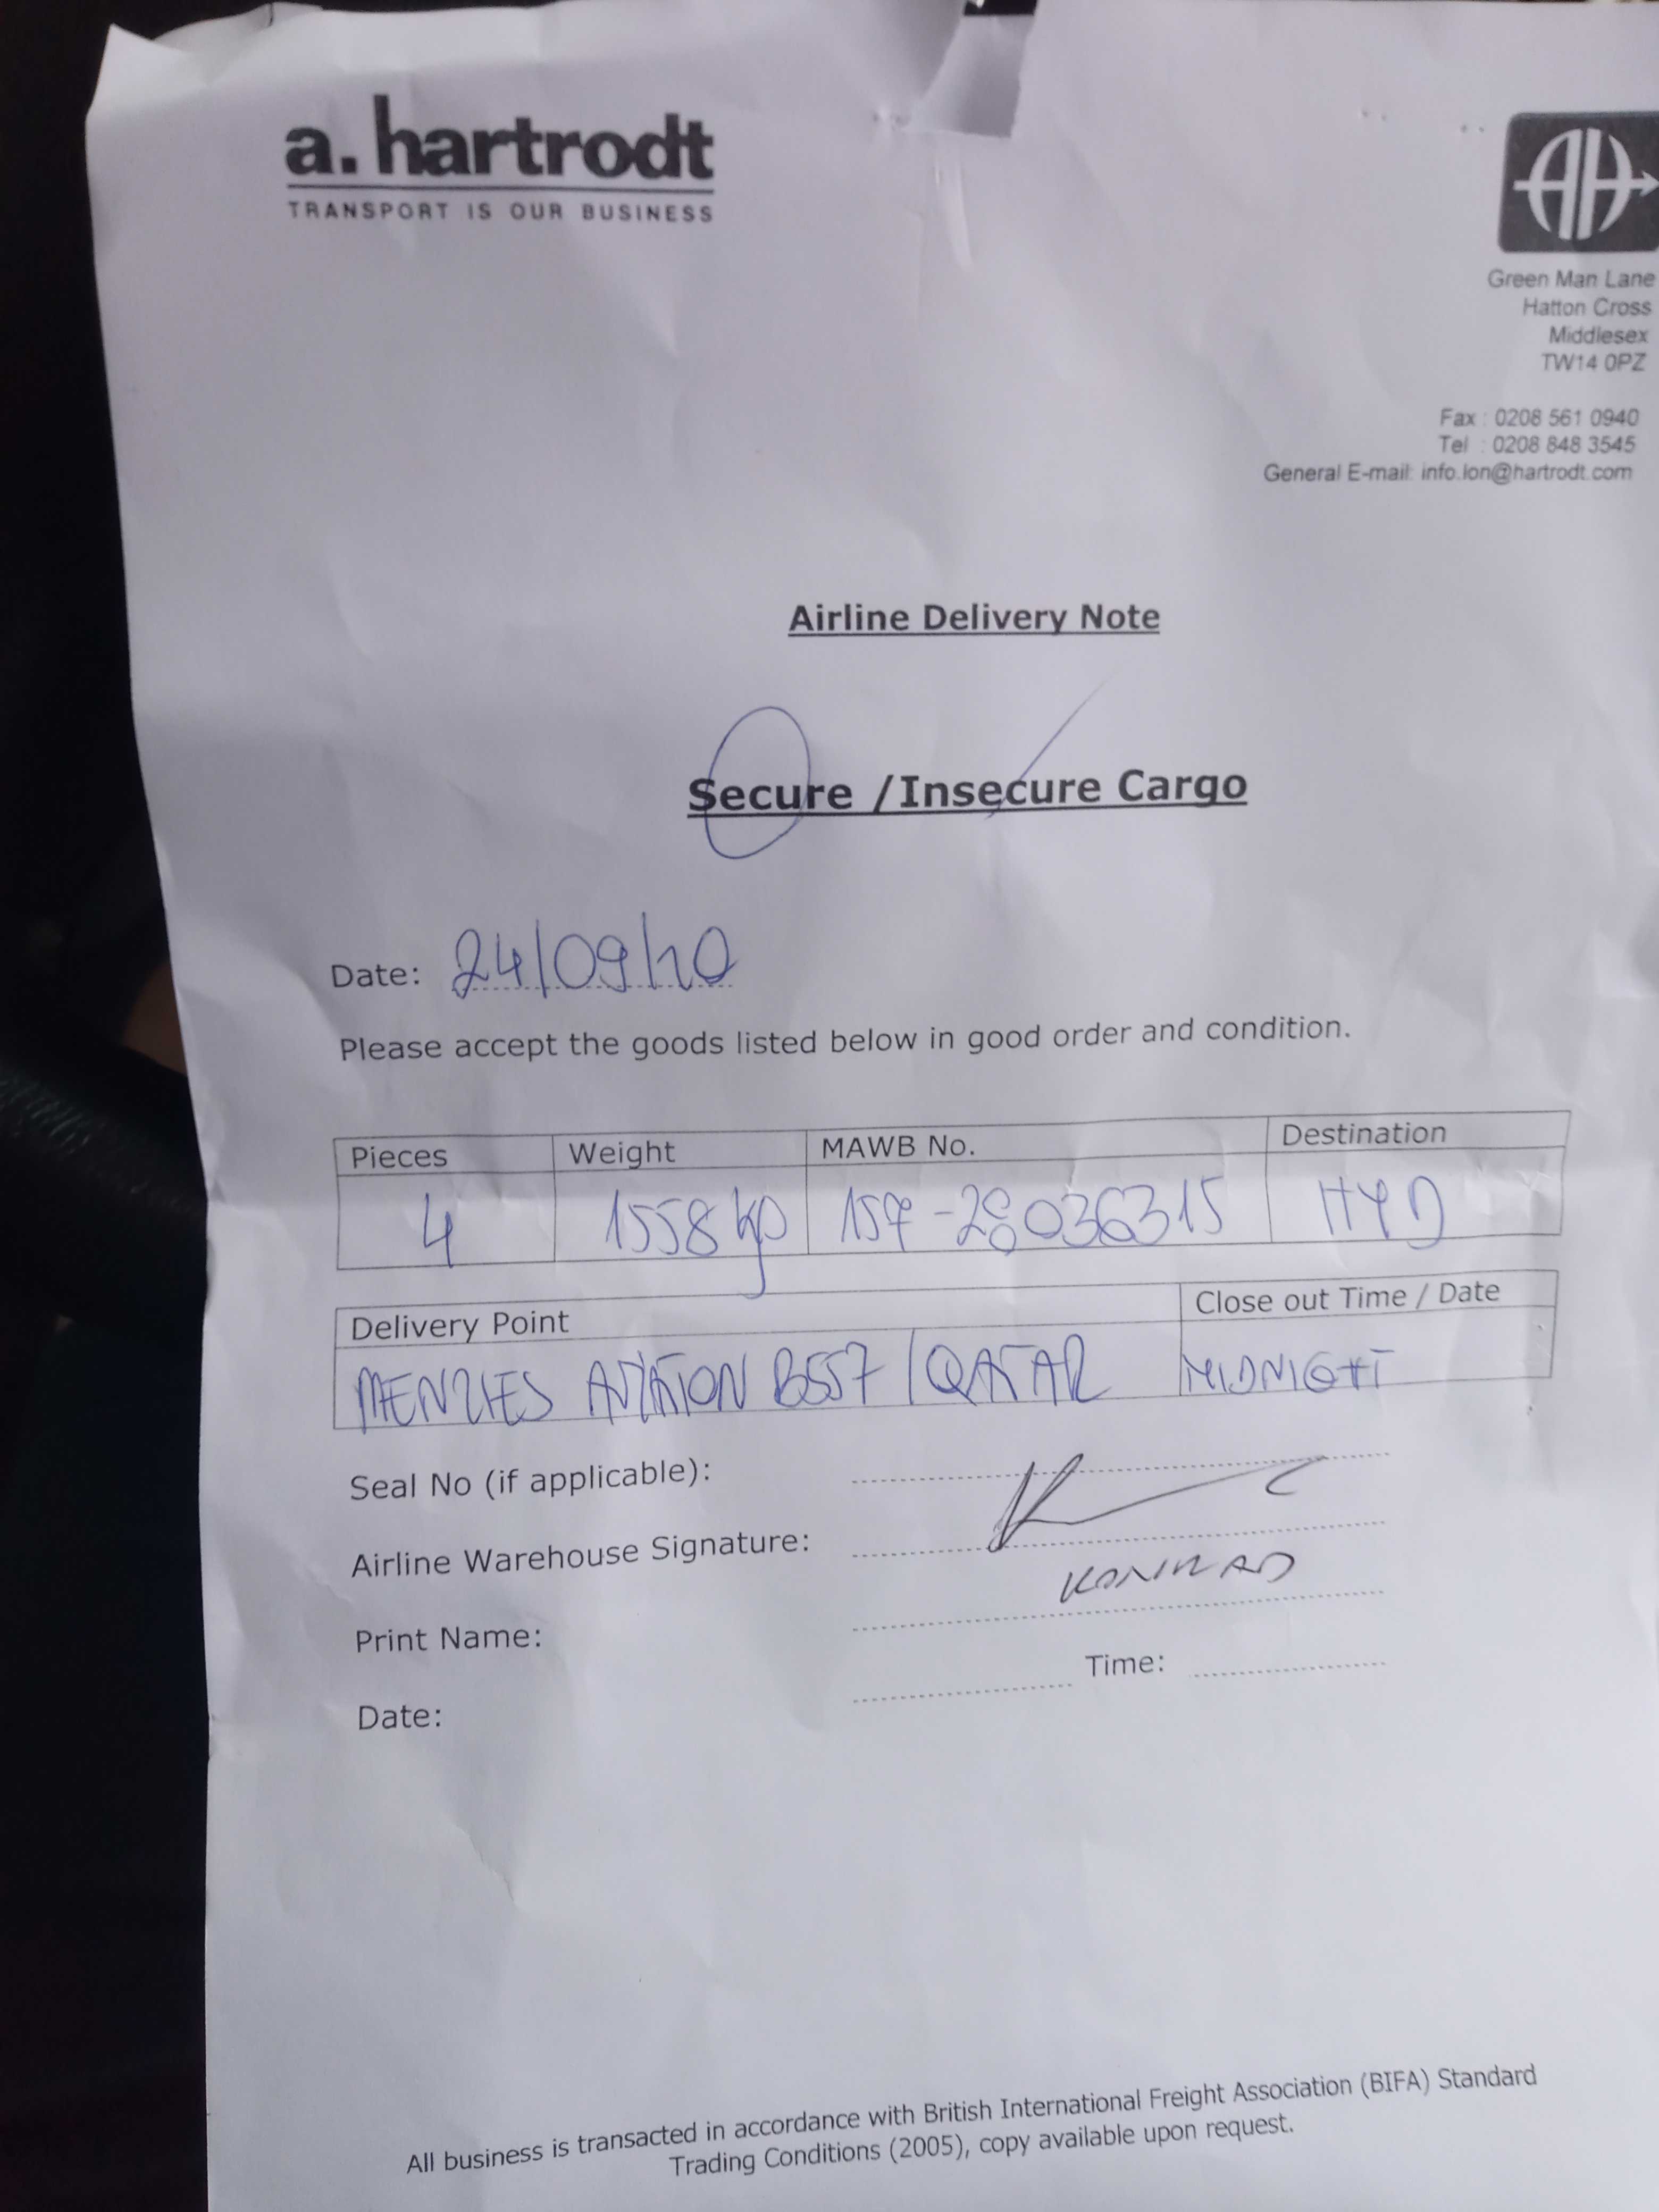 a. hartrodt
TRANSPORT IS OUR BUSINESS
AH
Green Man Lane
Hatton Cross
Middlesex
TW14 0PZ
Fax : 0208 561 0940
Tel : 0208 848 3545
General E-mail: info.lon@hartrodt.com
Airline Delivery Note
Secure / Insecure Cargo
Date: 24/09/20
Please accept the goods listed below in good order and condition.
Pieces Weight MAWB No. Destination
4 1558 kg 157-28036315 HYD
Delivery Point Close out Time / Date
MENZIES AVIATION B557 / QATAR MIDNIGHT
Seal No (if applicable):
Airline Warehouse Signature:
Print Name: KONRAD
Date: Time:
All business is transacted in accordance with British International Freight Association (BIFA) Standard
Trading Conditions (2005), copy available upon request.